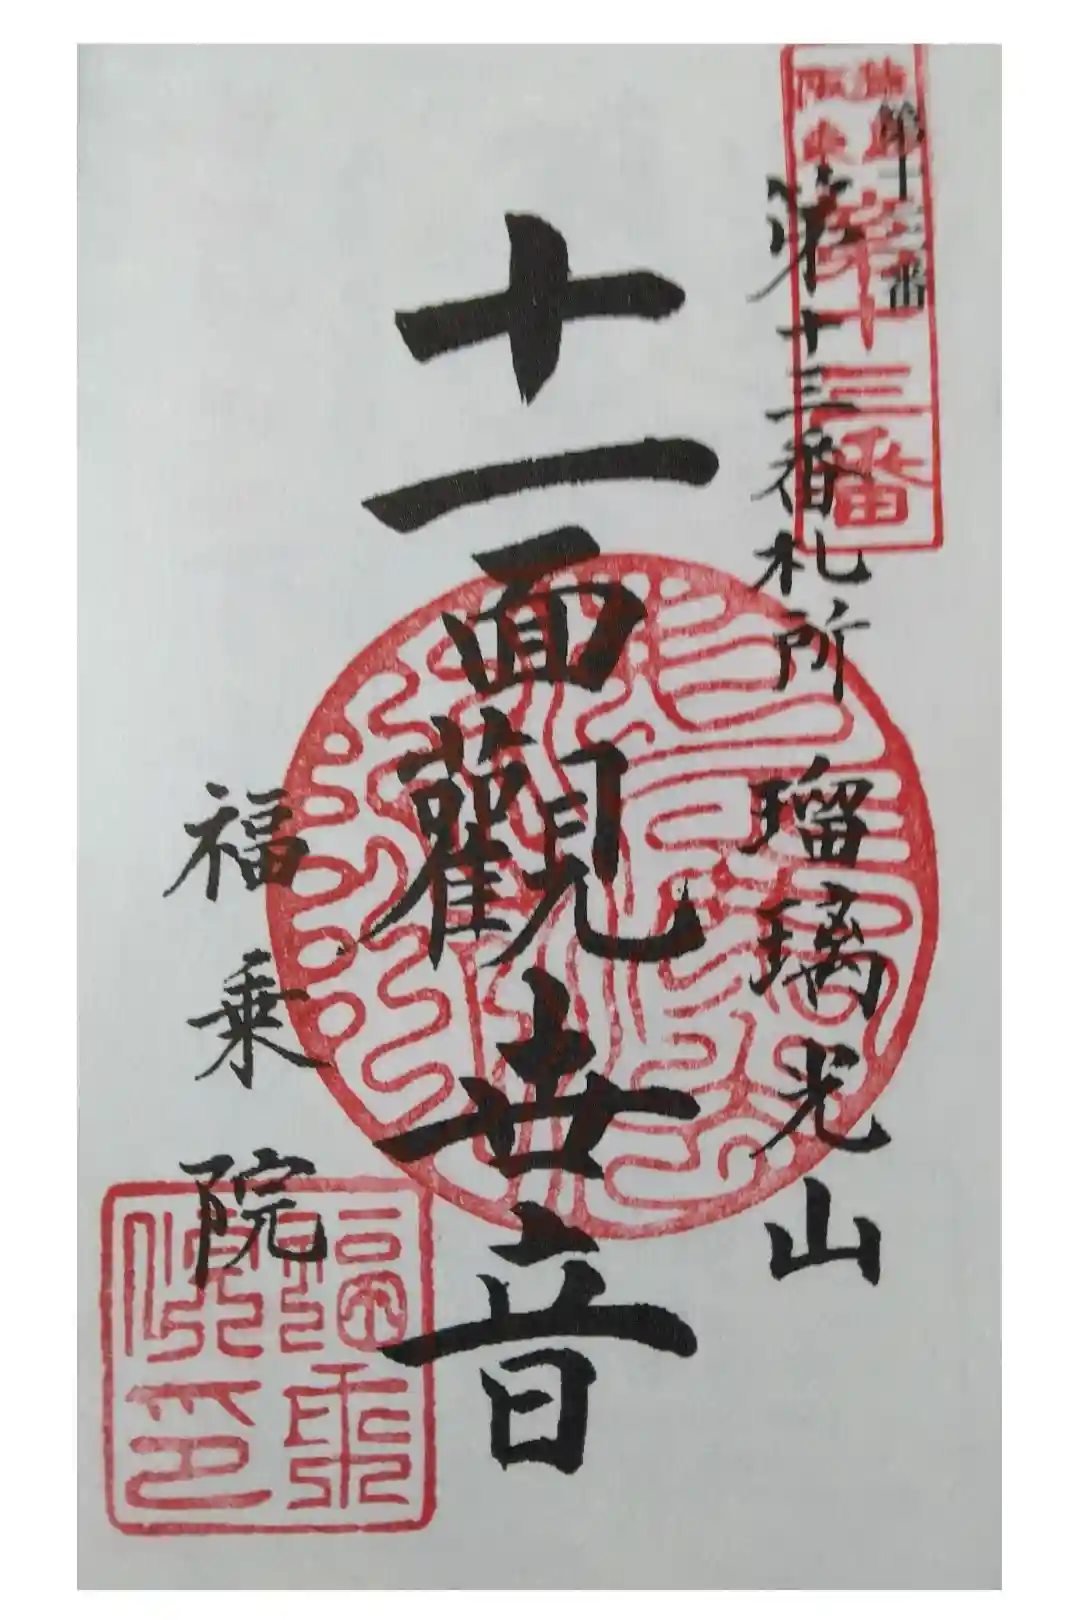 第十三番
第十三番
第十三番札所 瑠璃光山
十一面觀世音
福乗院
福乗院印